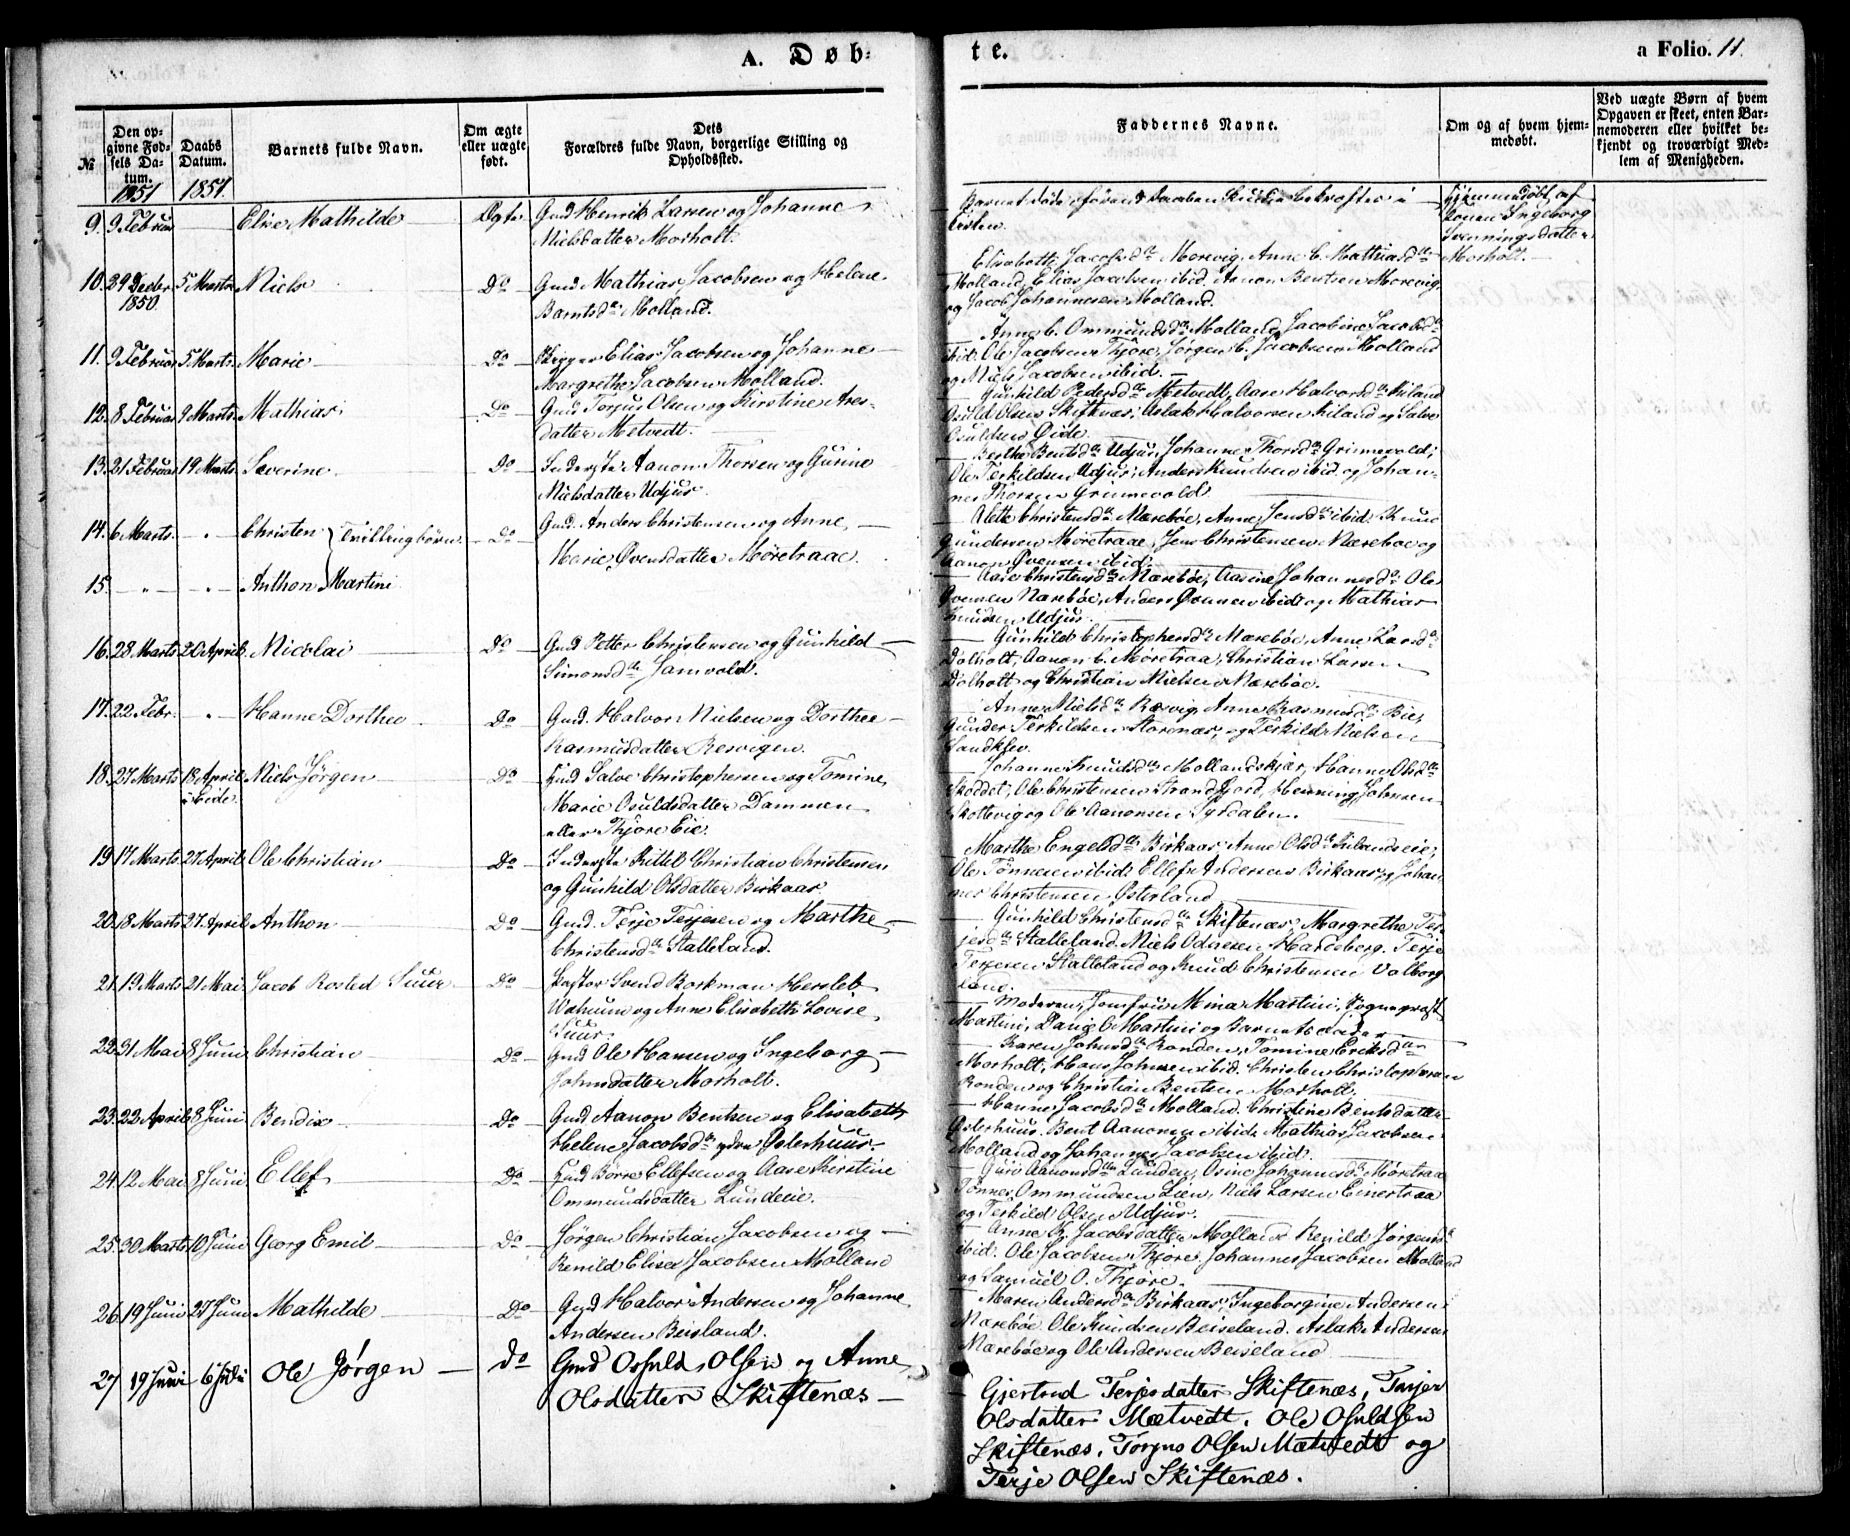 A. Døb-
te.
a Folio. 11.
№
Den opgivne Fødsels Datum.
1851
Daabs Datum.
1851.
Barnets fulde Navn.
Om ægte eller uægte født.
Dets Forældres fulde Navn, borgerlige Stilling og Opholdssted.
Faddernes Navne.
Om og af hvem hjemmedøbt.
Ved uægte Børn af hvem Opgaven er skeet, enten Barnemoderen eller hvilket bekjendt og troværdigt Medlem af Menigheden.
9. 9 Februar — Elise Mathilde — Ægte Gmd Henrik Larsen og Johanne
Nielsdatter Morholt.
Barnet døde førend Daaben kunde bekræftes i
Kirken.
Hjemmedøbt af
Konen Ingeborg
Svenningsdatter
Morholt.
10. 29 Decbr 1850. 5 Marts Niels Do Gmd Mathias Jacobsen og Helene
Berntsdtr Molland.
Elisabeth Jacobsdtr Morevig, Anne C. Mathiasdtr
Molland, Elias Jacobsen ibid. Aanon Bentsen Morevig,
og Jacob Johannesen Molland.
11. 9 Februar 5 Marts Marie — Do Skipper Elias Jacobsen og Johanne
Margrethe Jacobsen Molland.
Anne C. Ommundsdtr Molland, Jacobine Jacobsdtr
ibid. Ole Jacobsen Thjøre, Jørgen C. Jacobsen Molland
og Niels Jacobsen ibid. —
12. 8 Februar 9 Marts Mathias Do Gmd Torjus Olsen og Kirstine Ares-
datter Metvedt.
Gunhild Pedersdtr Metvedt, Aase Halvorsdtr Kiland
Osuld Olsen Skiftenæs, Aslak Halvorsen Kiland og Salve
Osuldsen Øide.
13. 21 Februar 19 Marts Severine Do Inderste Aanon Thorsen og Gurine
Nielsdatter Udjus.
Berthe Bentsdtr Udjus, Johanne Thorsdtr Grimevold;
Ole Terkildsen Udjus; Anders Knudsen ibid. og Johan-
nes Thorsen Grimevold
14. 6 Marts — Christen } Tvillingbørn Do Gmd. Anders Christensen og Anne
Marie Øvensdatter Møretraae.
Alette Christensdtr Nærebøe, Anne Jensdtr ibid. Knud
Gundersen Møretraae, Jens Christensen Nærebøe og
Aanon Øvensen ibid.
15. — Anthon Martini
Aase Christensdtr Nærebøe, Aasine Johannesdtr Ole
Øvensen Nærebøe, Anders Øvensen ibid og Mathias
Knudsen Udjus.
16. 28 Marts 20 April Nicolai Do Gmd Petter Christensen og Gunhild
Simonsdtr Jamvold.
Gunhild Christophersdtr Nærebøe, Anne Larsdtr
Dalholt, Aanon C. Møretraa, Christian Larsen
Dalholt og Christian Nielsen Nærebøe.
17. 22 Febr. Hanne Dorthea Do Gmd. Halvor Nielsen og Dorthee
Rasmusdatter Resvigen.
Anne Nielsdtr Resvig, Anne Rasmusdtr Bie,
Gunder Terkildsen Storenæs, og Terkild Nielsen
Landklev.
18. 27 Marts 18 April i Eide. Niels Jørgen Do Gmd Salve Christophersen og Tomine
Marie Osuldsdatter Dammen
eller Thjøre Eie.
Johanne Knudsdtr Mollandskjær, Hanne Olsdtr
Skoddet, Ole Christensen Strandfjord, Henning Johnsen
Skottevig og Ole Aanonsen Syrdalen.
19. 17 Marts 27 April Ole Christian Do Inderste Kittil Christian Christensen
og Gunhild Olsdatter Birkaas.
Marthe Engelsdtr Birkaas, Anne Olsdtr Kilandseie;
Ole Tønnesen ibid. Ellef Andersen Birkaas og Johan-
nes Christensen Østerland
20. 18 Marts 27 April Anthon — Do Gmd. Terje Terjesen og Marthe
Christensdtr Stalleland.
Gunhild Christensdtr Skiftenæs, Margrethe Ter-
jesdtr Stalleland. Niels Odaesen Hardeberg. Terje
Terjesen Stalleland og Knud Christensen Valborg-
land.
21. 19 Marts 21 Mai Jacob Rosted Suur Do Pastor Svend Borkman Hersleb
Walnum og Anne Elisabeth Lovise
Suur.
Moderen, Jomfru Mina Martini, Sogneprest
Martini, Danie C. Martini og Barnets Fader
22. 31 Mai 8 Juni Christian — Do Gmd Ole Hansen og Ingeborg
Johnsdatter Morholt.
Karen Johnsdtr Ronden, Tomine Eriksdtr
Morholt, Hans Johnsen ibid. Christen Christophersen
Ronden og Christian Bentsen Morholt.
23. 22 April 8 Juni Bendix — Do Gmd Aanon Bentsen og Elisabeth
Helene Jacobsdtr ydre Østerhuus.
Hanne Jacobsdtr Molland. Christine Bentsdatter
Østerhuus. Bent Aanonsen ibid. Mathias Jacobsen
Molland og Johannes Jacobsen ibid.
24. 12 Mai 8 Juni Ellef Do Gmd Børre Ellefsen og Aase Kirstine
Ommundsdatter Lundeie.
Guro Aanonsdtr Lunden, Osine Johannesdtr Møretraa
Tønnes Ommundsen Lien, Niels Larsen Einertraa
og Terkild Olsen Udjus.
25. 30 Marts 10 Juni Georg Emil — Do Jørgen Christian Jacobsen og
Renild Elise Jacobsen Molland
Anne K. Jacobsdatter Molland Renild Jørgensdtr
ibid. Ole Jacobsen Thjøre. Johannes Jacobsen Molland
og Samuel O. Thjøre.
26. 19 Juni 27 Juni Mathilde — Do Gmd Halvor Andersen og Johanne
Andersen Beisland.
Maren Andersdtr Birkaas, Ingeborgine Andersen
Nærebøe Ole Knudsen Beiseland. Aslak Andersen
Nærebøe og Ole Andersen Beiseland
27 19 Juni 6 Juli Ole Jørgen — Do Gmd Osuld Olsen og Anne
Olsdatter Skiftenæs —
Gjertrud Terjesdatter Skiftenæs, Torjer
Olsdatter Mætvedt. Ole Osuldsen
Skiftenæs. Torjus Olsen Mætvedt og
Terje Olsen Skiftenæs.